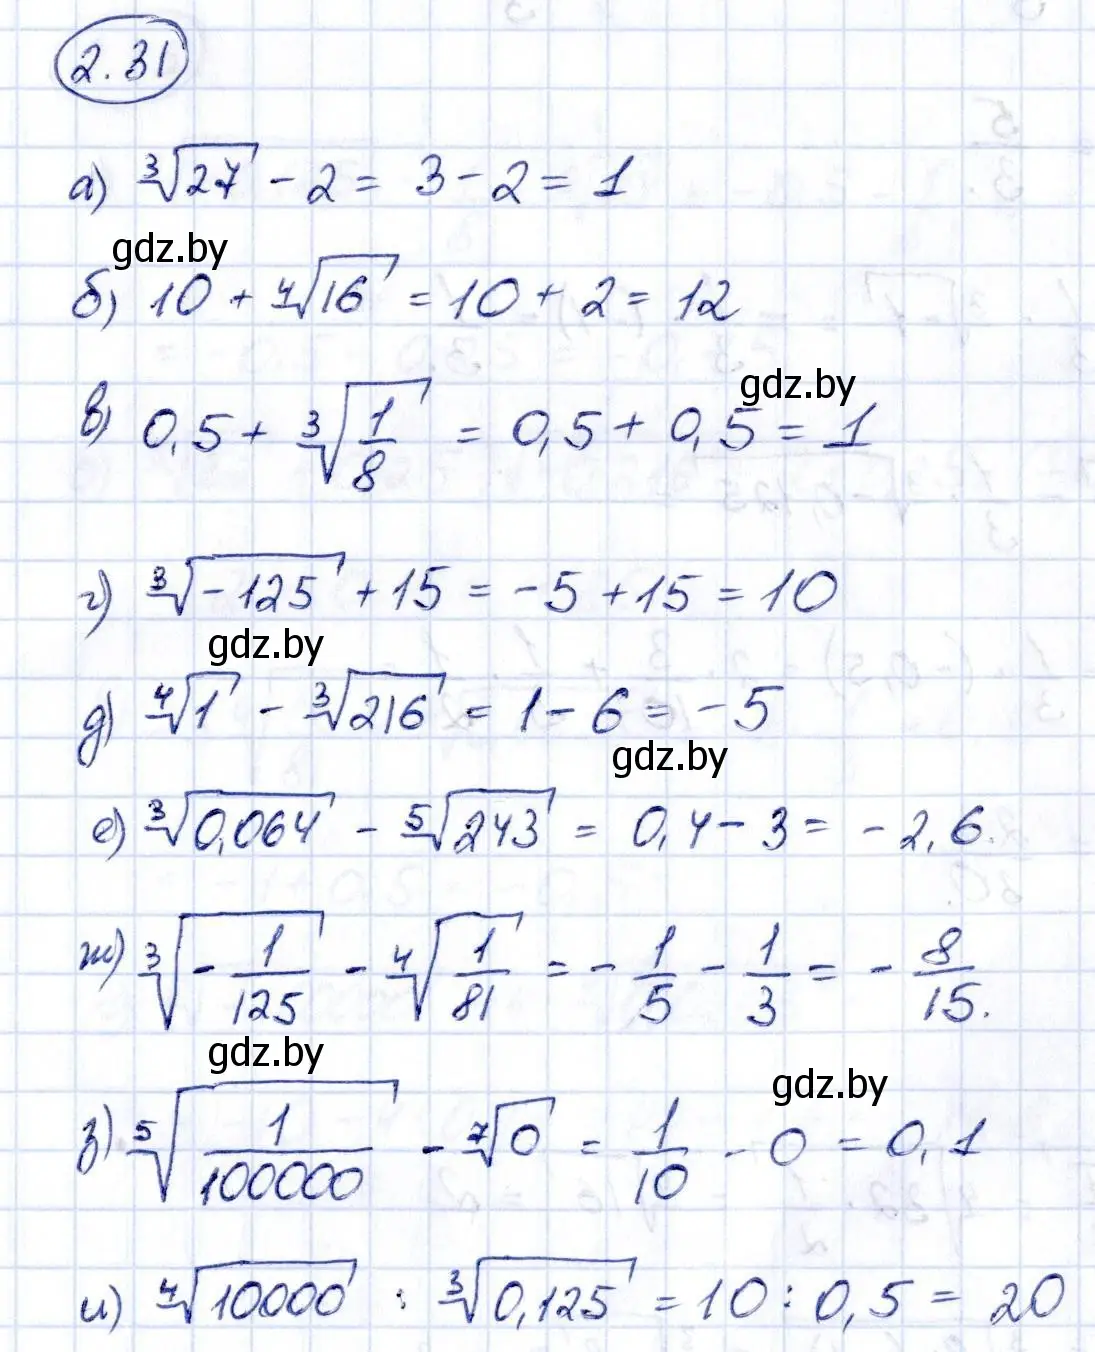 2.31
а) ∛27 - 2 = 3 - 2 = 1
gdz.by
б) 10 + ∜16 = 10 + 2 = 12
gdz.by
в) 0,5 + ∛(1/8) = 0,5 + 0,5 = 1
г) ∛(-125) + 15 = -5 + 15 = 10
gdz.by
д) ∜1 - ∛216 = 1 - 6 = -5
gdz.by
е) ∛0,064 - ⁵√243 = 0,4 - 3 = -2,6.
ж) ∛(-1/125) - ∜(1/81) = -1/5 - 1/3 = -8/15.
gdz.by
gdz.by
з) ⁵√(1/100000) - ⁷√0 = 1/10 - 0 = 0,1
и) ∜10000 : ∛0,125 = 10 : 0,5 = 20